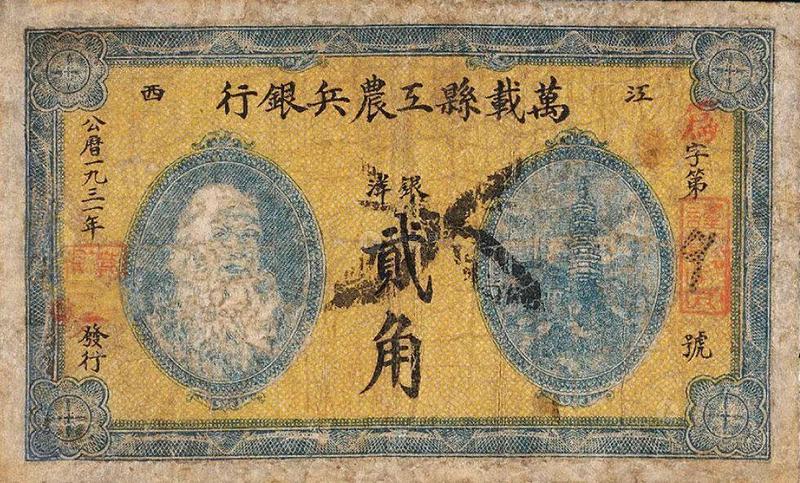 江西
萬載縣工農兵銀行
銀洋
貳角
字第
號
公曆一九三一年
發行